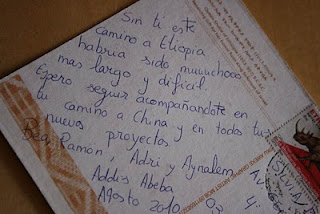 Sin ti este
camino a Etiopia
habría sido muuuchooo
mas largo y difícil.
Espero seguir acompañandote en
tu camino a China y en todos tus
nuevos proyectos
Bea, Ramón, Adri y Aynalem
Addis Abeba
Agosto 2010